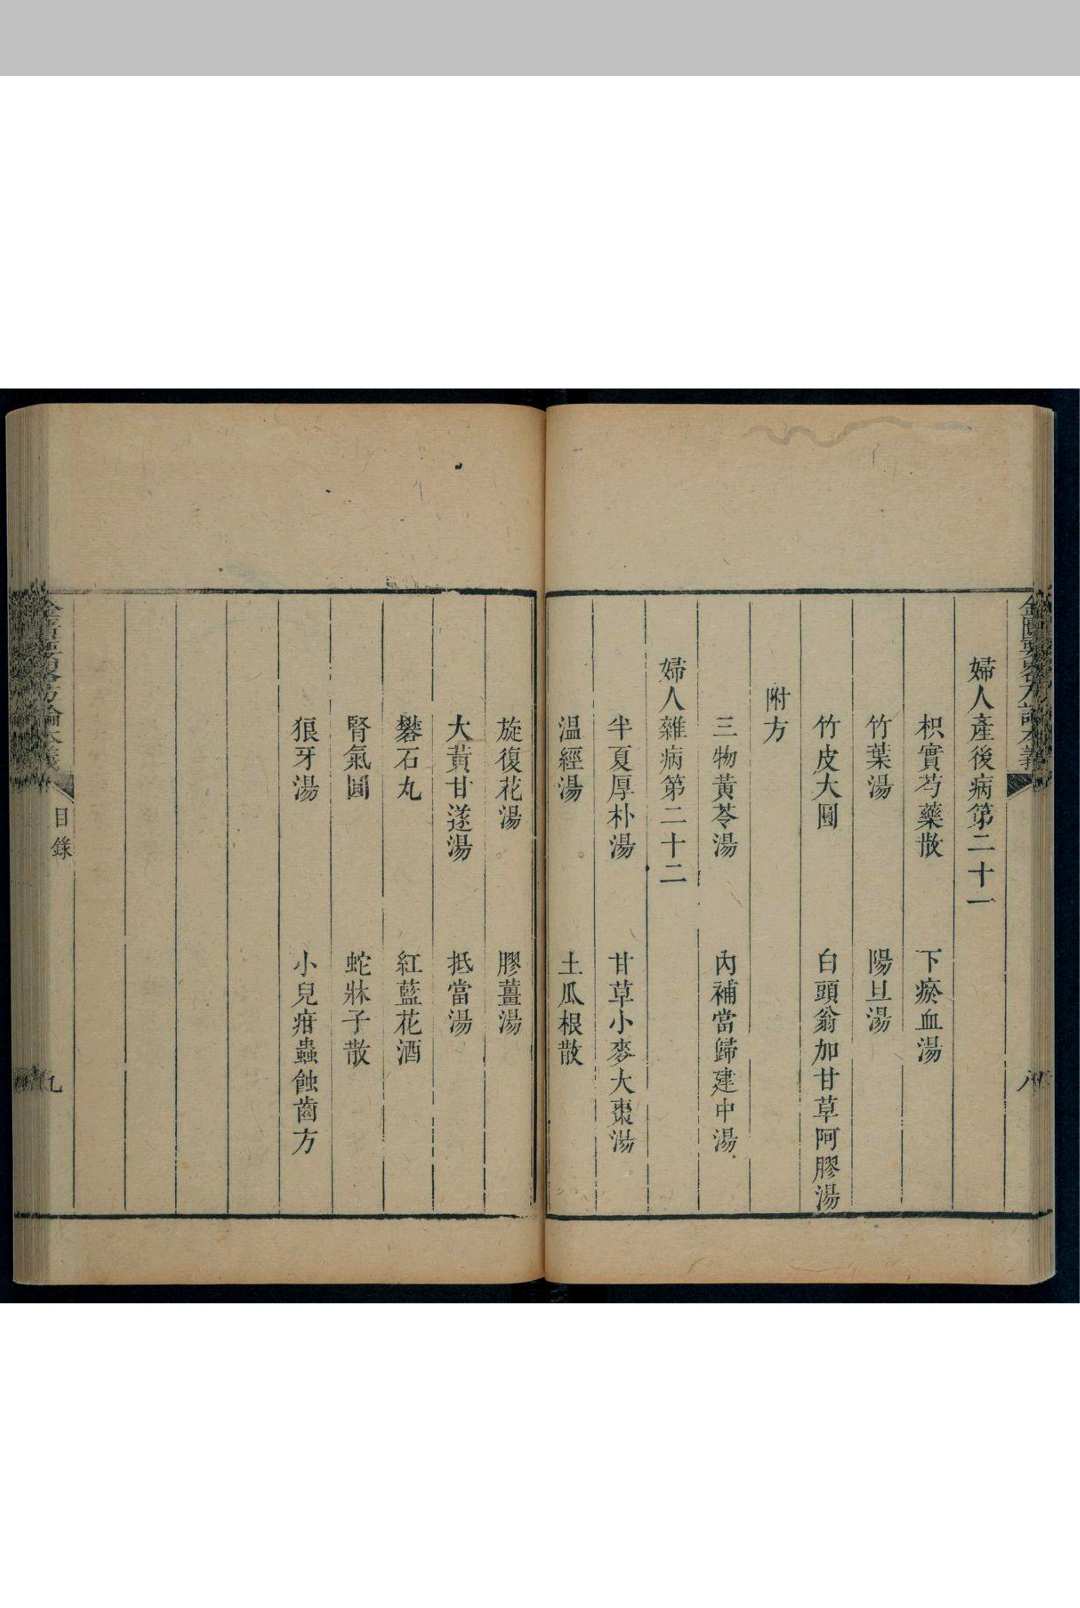 婦人產後病第二十一
枳實芍藥散　下瘀血湯
竹葉湯　陽旦湯
竹皮大圓　白頭翁加甘草阿膠湯
附方
三物黃芩湯　內補當歸建中湯
婦人雜病第二十二
半夏厚朴湯　甘草小麥大棗湯
溫經湯　土瓜根散
旋復花湯　膠薑湯
大黃甘遂湯　抵當湯
礬石丸　紅藍花酒
腎氣圓　蛇牀子散
狼牙湯　小兒疳蟲蝕齒方
金匱要略方論本義
目錄
九
金匱要略方論本義
八